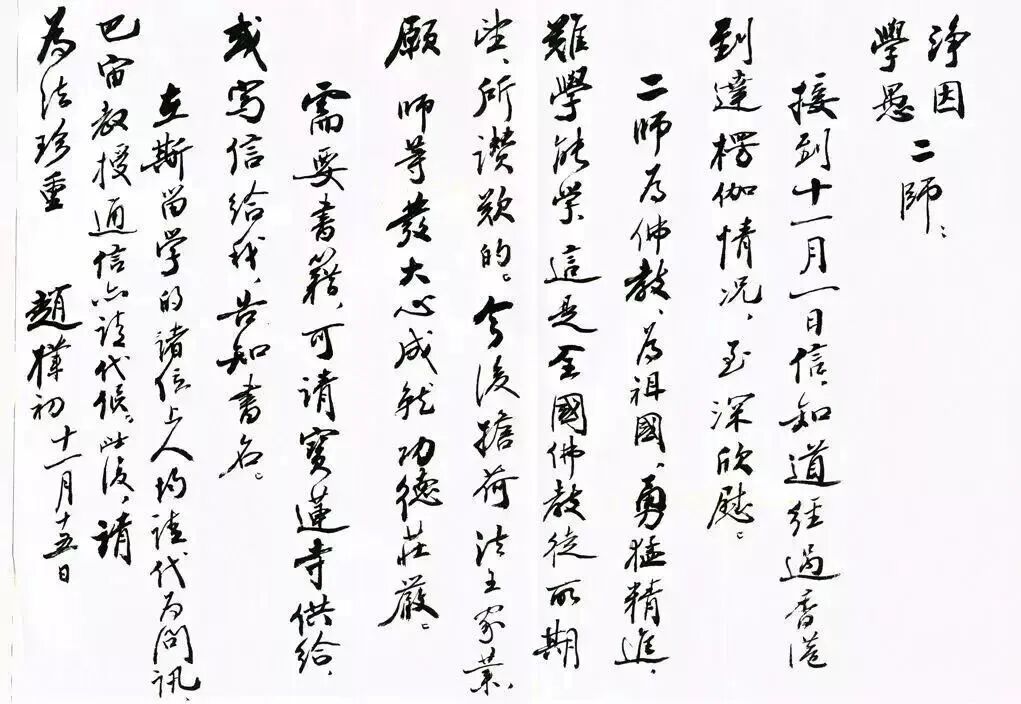 淨因
學愚 二師：
接到十一月一日信，知道經過香港
到達楞伽情況，至深欣慰。
二師為佛教、為祖國，勇猛精進，
難學能學，這是全國佛教徒所期
望、所讚歎的。今後擔荷法王家業，
願 師等發大心成就功德莊嚴。
需要書籍，可請寶蓮寺供給，
或寫信給我，告知書名。
在斯留學的諸位上人均請代為問訊，
巴宙教授通信亦請代候。此後，請
為法珍重 趙樸初 十一月十五日